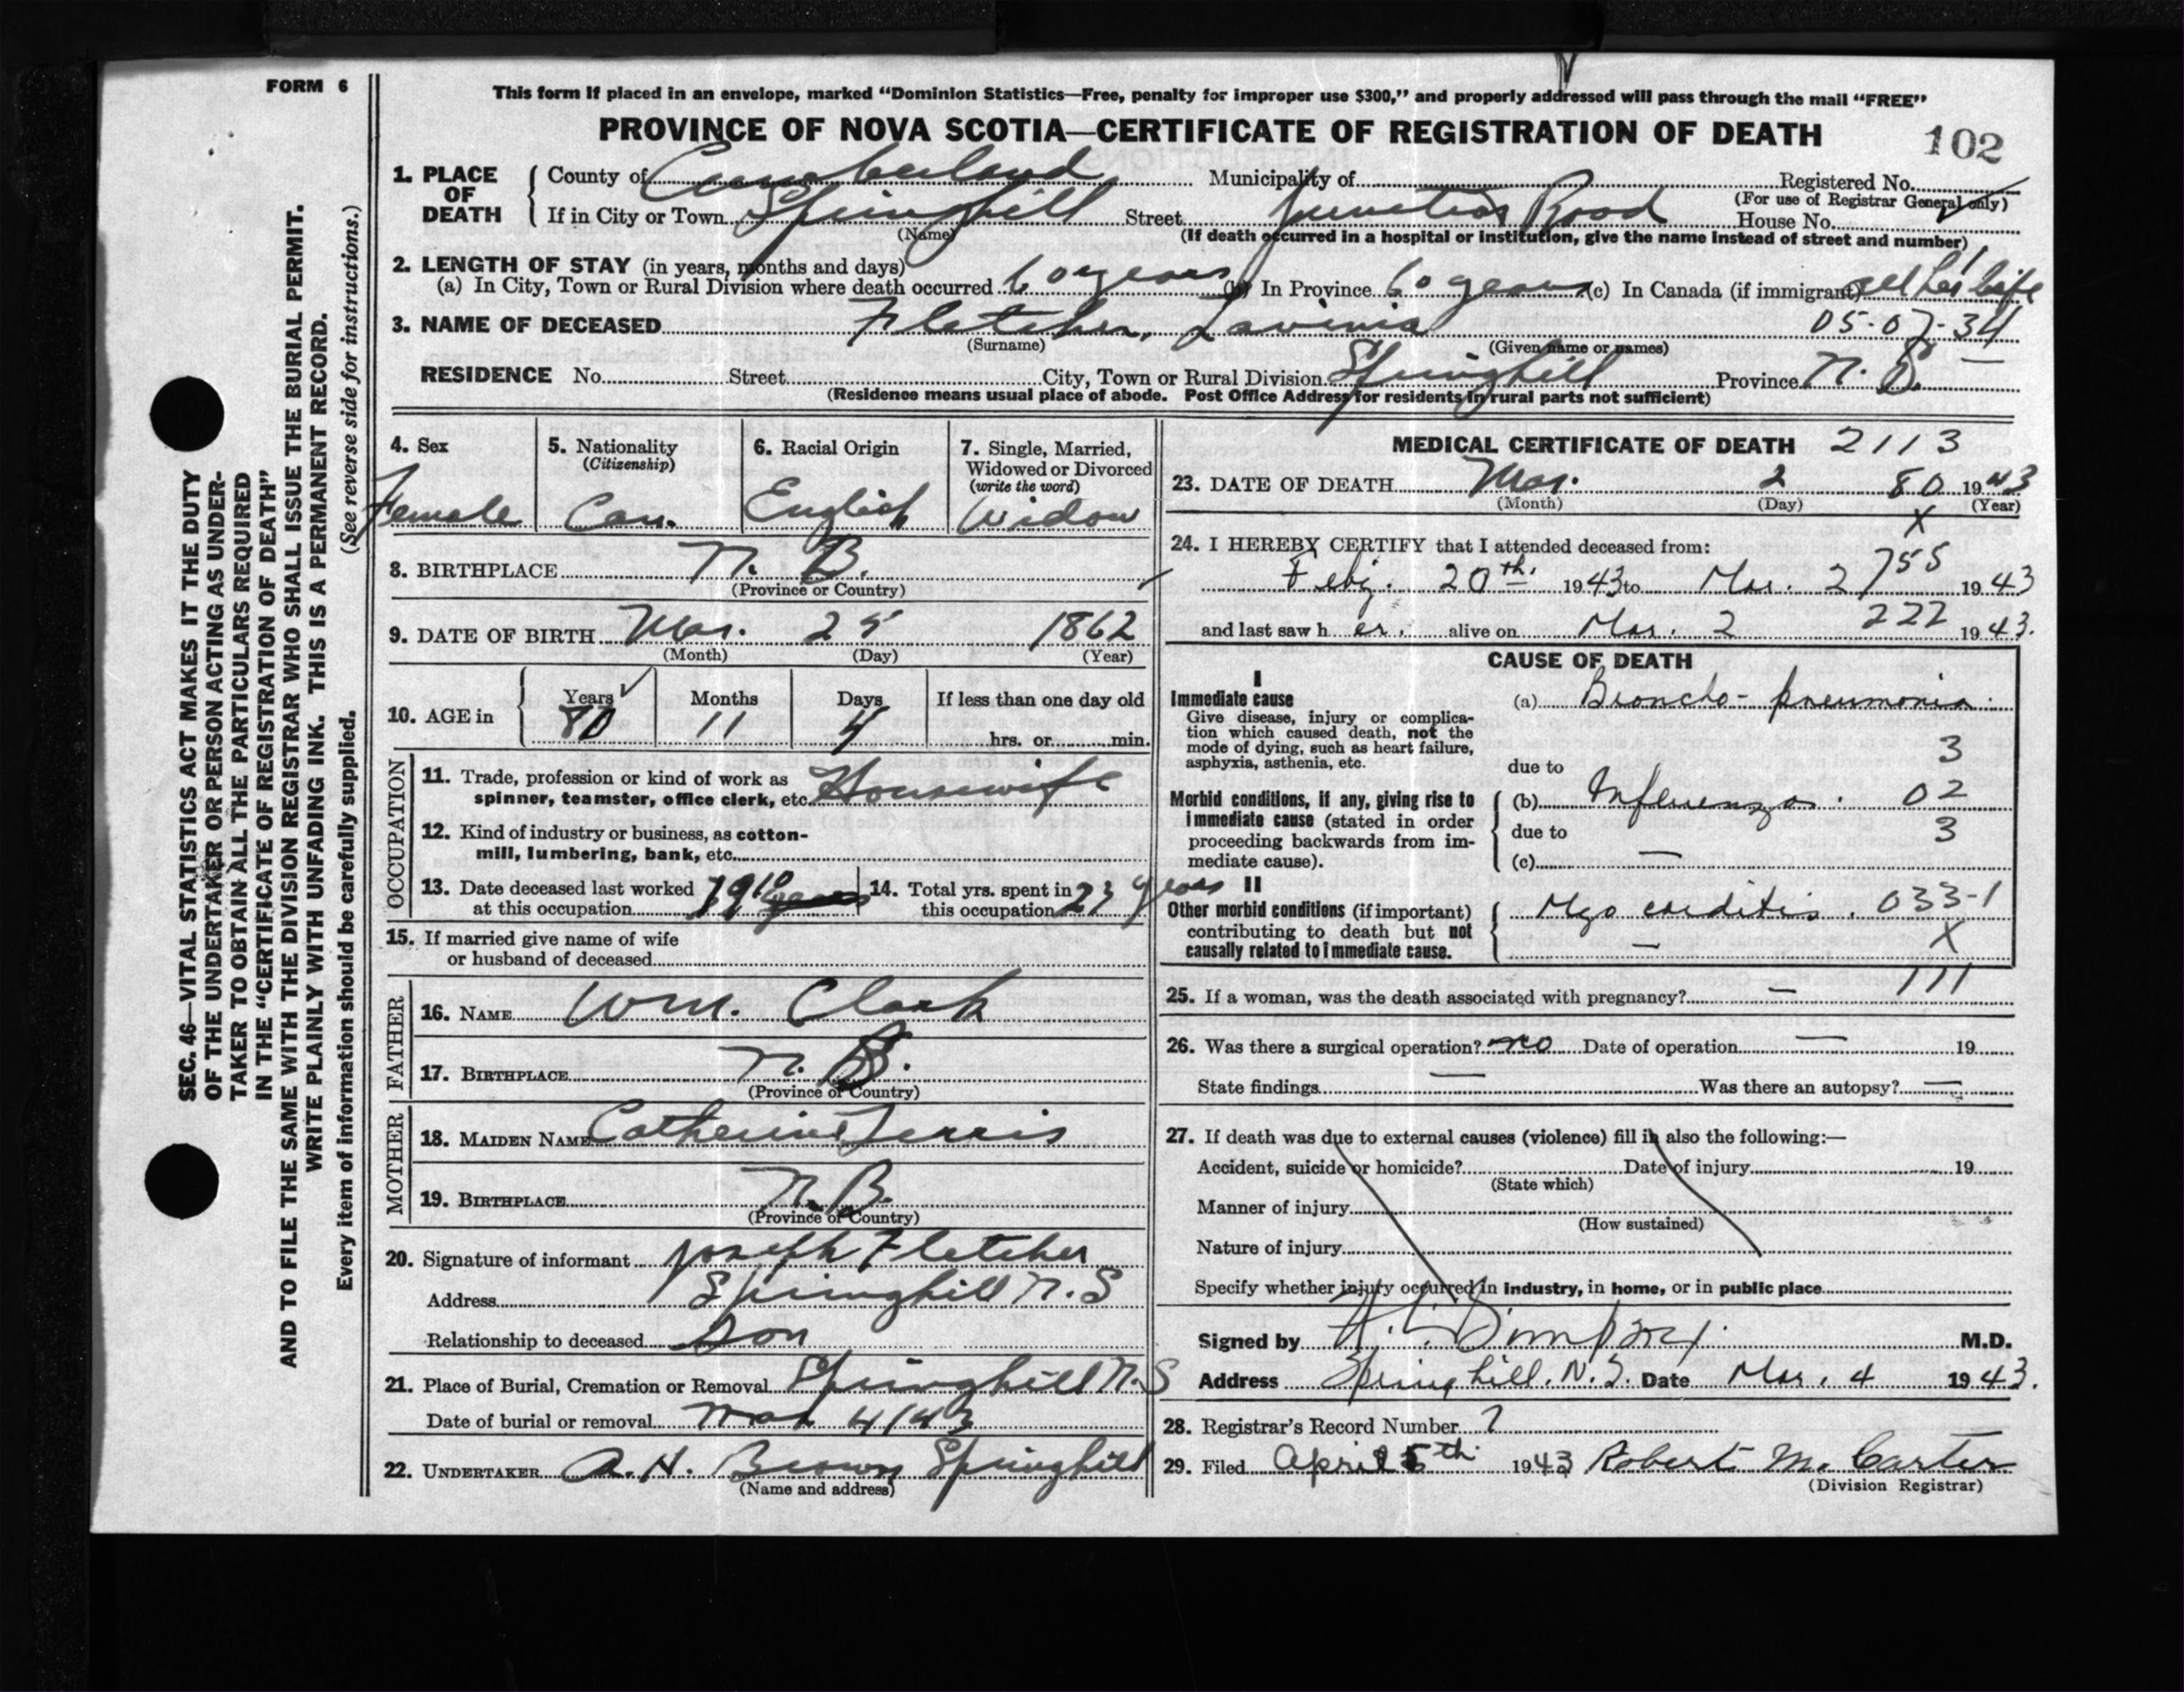 FORM 6
This form if placed in an envelope, marked “Dominion Statistics—Free, penalty for improper use $300,” and properly addressed will pass through the mail “FREE”
PROVINCE OF NOVA SCOTIA—CERTIFICATE OF REGISTRATION OF DEATH 102
1. PLACE OF DEATH County of Cumberland Municipality of Registered No.
(For use of Registrar General only)
If in City or Town Springhill Street Junction Road House No.
(Name) (If death occurred in a hospital or institution, give the name instead of street and number)
2. LENGTH OF STAY (in years, months and days)
(a) In City, Town or Rural Division where death occurred 60 years (b) In Province 60 years (c) In Canada (if immigrant) all her life
3. NAME OF DECEASED Fletcher, Lavinia 05-07-34
(Surname) (Given name or names)
RESIDENCE No. Street City, Town or Rural Division Springhill Province N. S.
(Residence means usual place of abode. Post Office Address for residents in rural parts not sufficient)
4. Sex 5. Nationality (Citizenship) 6. Racial Origin 7. Single, Married, Widowed or Divorced (write the word)
Female Can. English Widow
8. BIRTHPLACE N. B.
(Province or Country)
9. DATE OF BIRTH Mar. 25 1862
(Month) (Day) (Year)
10. AGE in Years Months Days If less than one day old
80 11 hrs. or min.
OCCUPATION
11. Trade, profession or kind of work as spinner, teamster, office clerk, etc. Housewife
12. Kind of industry or business, as cotton-mill, lumbering, bank, etc.
13. Date deceased last worked at this occupation 1910 14. Total yrs. spent in this occupation 23 years
15. If married give name of wife or husband of deceased
FATHER
16. NAME Wm. Clark
17. BIRTHPLACE N. B.
(Province or Country)
MOTHER
18. MAIDEN NAME Catherine Ferris
19. BIRTHPLACE N. B.
(Province or Country)
20. Signature of informant Joseph Fletcher
Address Springhill N. S
Relationship to deceased Son
21. Place of Burial, Cremation or Removal Springhill N. S
Date of burial or removal Mar 4/43
22. UNDERTAKER A. H. Brown Springhill
(Name and address)
MEDICAL CERTIFICATE OF DEATH 2113
23. DATE OF DEATH Mar. 2 80 1943
(Month) (Day) X (Year)
24. I HEREBY CERTIFY that I attended deceased from:
Feby. 20th. 1943 to Mar. 2 755 1943
and last saw h er. alive on Mar. 2 222 1943.
CAUSE OF DEATH
I
Immediate cause (a) Broncho-pneumonia.
Give disease, injury or complication which caused death, not the mode of dying, such as heart failure, asphyxia, asthenia, etc. due to 3
Morbid conditions, if any, giving rise to immediate cause (stated in order proceeding backwards from immediate cause). (b) Influenza. 02
due to 3
(c) —
II
Other morbid conditions (if important) contributing to death but not causally related to immediate cause. Myocarditis. 033-1
— X
25. If a woman, was the death associated with pregnancy? — 111
26. Was there a surgical operation? no Date of operation — 19
State findings — Was there an autopsy? —
27. If death was due to external causes (violence) fill in also the following:—
Accident, suicide or homicide? Date of injury 19
(State which)
Manner of injury
(How sustained)
Nature of injury
Specify whether injury occurred in industry, in home, or in public place
Signed by M.D.
Address Springhill. N. S. Date Mar. 4 1943.
28. Registrar's Record Number 7
29. Filed April 5th 1943 Robert M. Carter
(Division Registrar)
SEC. 46—VITAL STATISTICS ACT MAKES IT THE DUTY
OF THE UNDERTAKER OR PERSON ACTING AS UNDER-
TAKER TO OBTAIN ALL THE PARTICULARS REQUIRED
IN THE “CERTIFICATE OF REGISTRATION OF DEATH”
AND TO FILE THE SAME WITH THE DIVISION REGISTRAR WHO SHALL ISSUE THE BURIAL PERMIT.
WRITE PLAINLY WITH UNFADING INK. THIS IS A PERMANENT RECORD.
Every item of information should be carefully supplied. (See reverse side for instructions.)